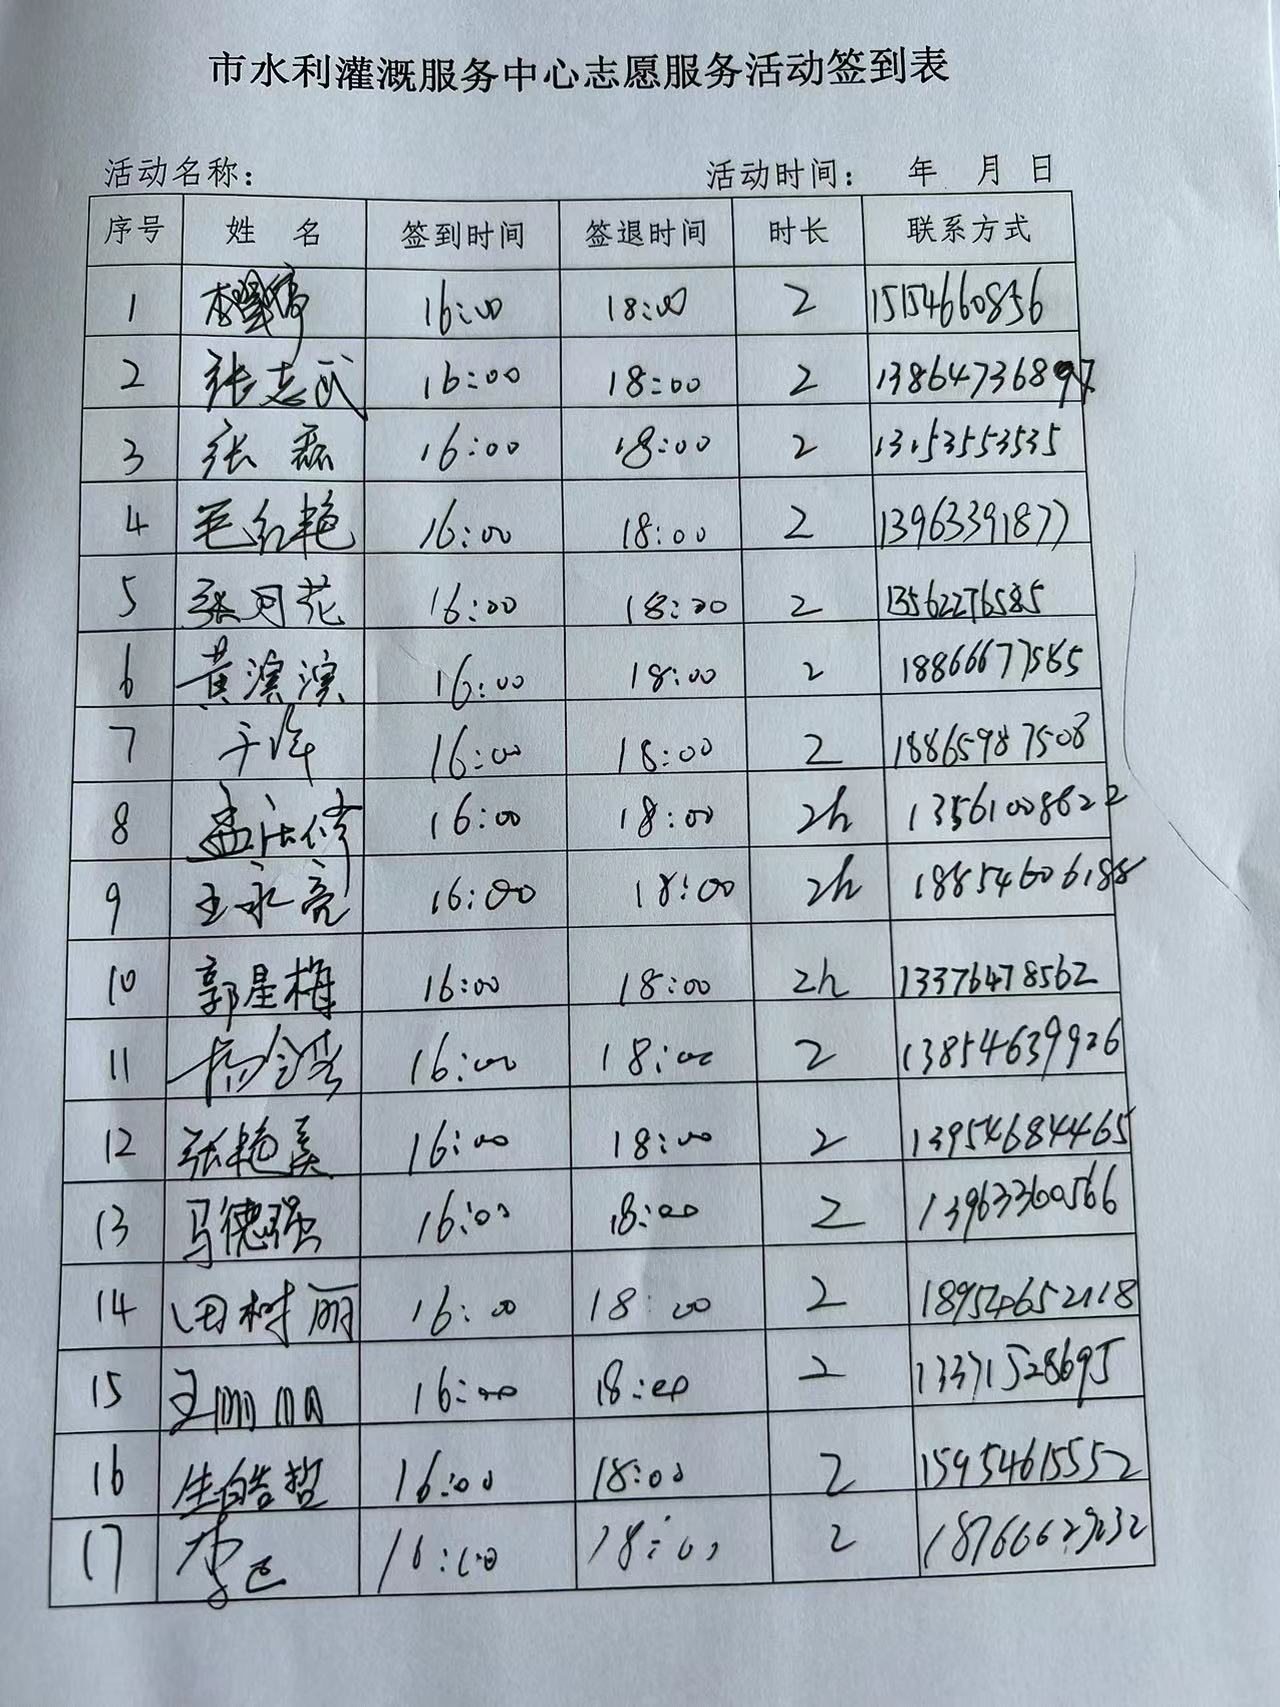 市水利灌溉服务中心志愿服务活动签到表
活动名称： 活动时间： 年 月 日
序号 姓 名 签到时间 签退时间 时长 联系方式
1 16:00 18:00 2 15154660856
2 张志武 16:00 18:00 2 13864736897
3 张磊 16:00 18:00 2 13153553535
4 毛红艳 16:00 18:00 2 13963391877
5 张月花 16:00 18:00 2 13562276585
6 黄滨滨 16:00 18:00 2 18866677585
7 16:00 18:00 2 18865987508
8 孟法修 16:00 18:00 2h 13561008622
9 王永亮 16:00 18:00 2h 18854606188
10 郭星梅 16:00 18:00 2h 13376478562
11 16:00 18:00 2 13854639926
12 张艳美 16:00 18:00 2 13954684465
13 马德强 16:00 18:00 2 13963360566
14 田树丽 16:00 18:00 2 18954652118
15 王丽丽 16:00 18:00 2 13371528695
16 生皓哲 16:00 18:00 2 15954615552
17 16:00 18:00 2 18766629232